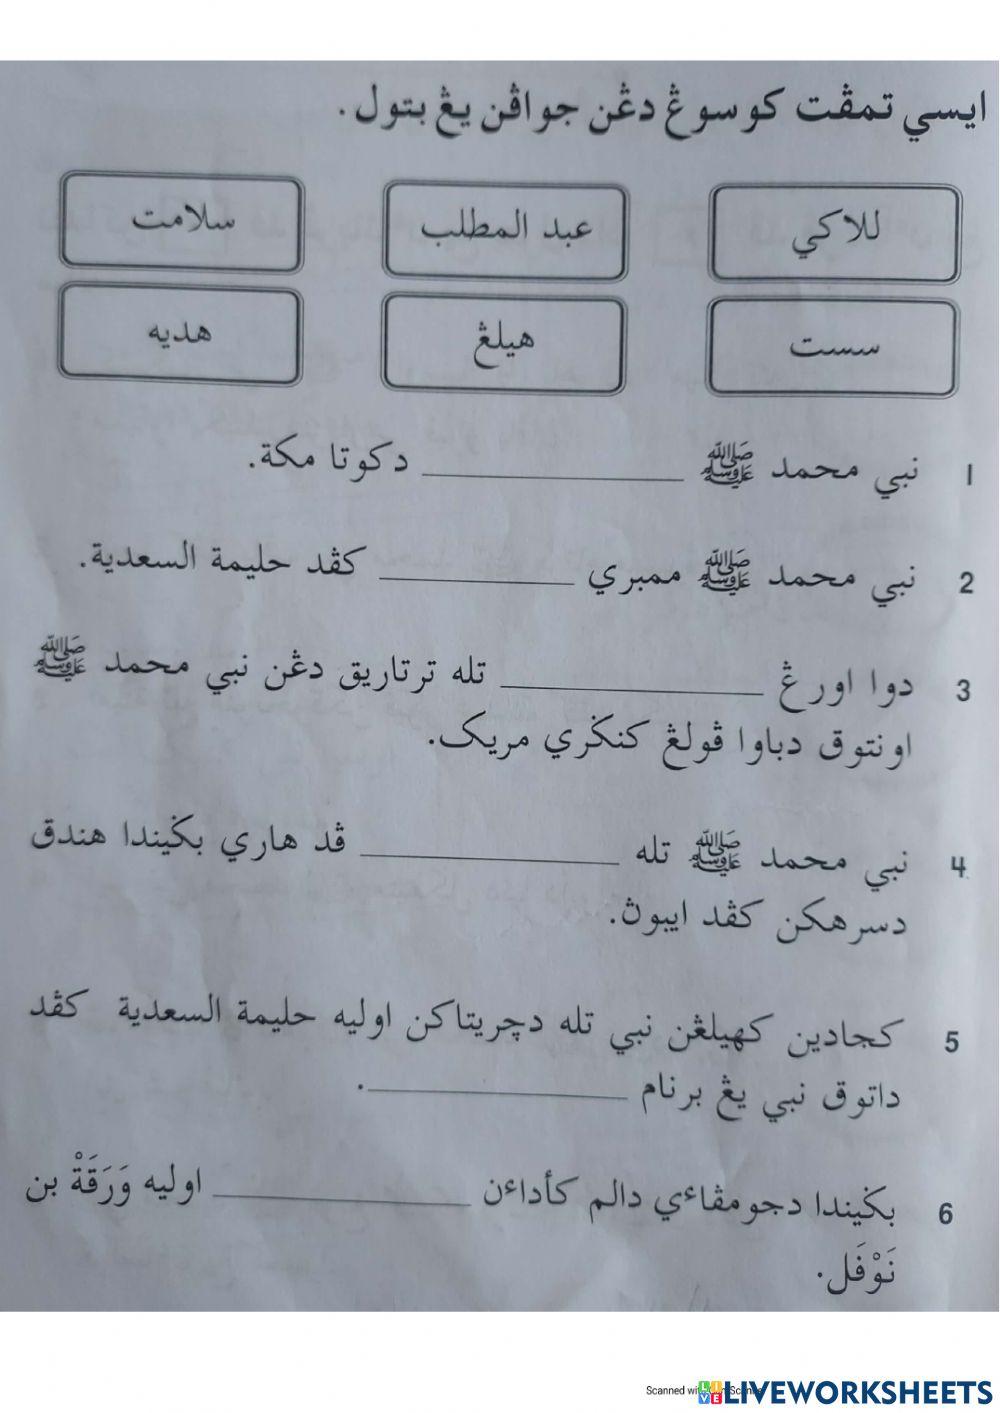 ايسي تمڤت كوسوڠ دڠن جواڤن يڠ بتول.
للاكي
عبد المطلب
سلامت
سست
هيلڠ
هديه
1 نبي محمد ﷺ ____________ دكوتا مكة.
2 نبي محمد ﷺ ممبري ____________ كڤد حليمة السعدية.
3 دوا اورڠ ____________ تله ترتاريق دڠن نبي محمد ﷺ
اونتوق دباوا ڤولڠ كنݢري مريک.
4 نبي محمد ﷺ تله ____________ ڤد هاري بݢيندا هندق
دسرهكن كڤد ايبوڽ.
5 كجادين كهيلڠن نبي تله دچريتاكن اوليه حليمة السعدية كڤد
داتوق نبي يڠ برنام ____________.
6 بݢيندا دجومڤاءي دالم كأداءن ____________ اوليه وَرَقَةْ بن
نَوْفَل.
Scanned with CamScanner
LIVEWORKSHEETS